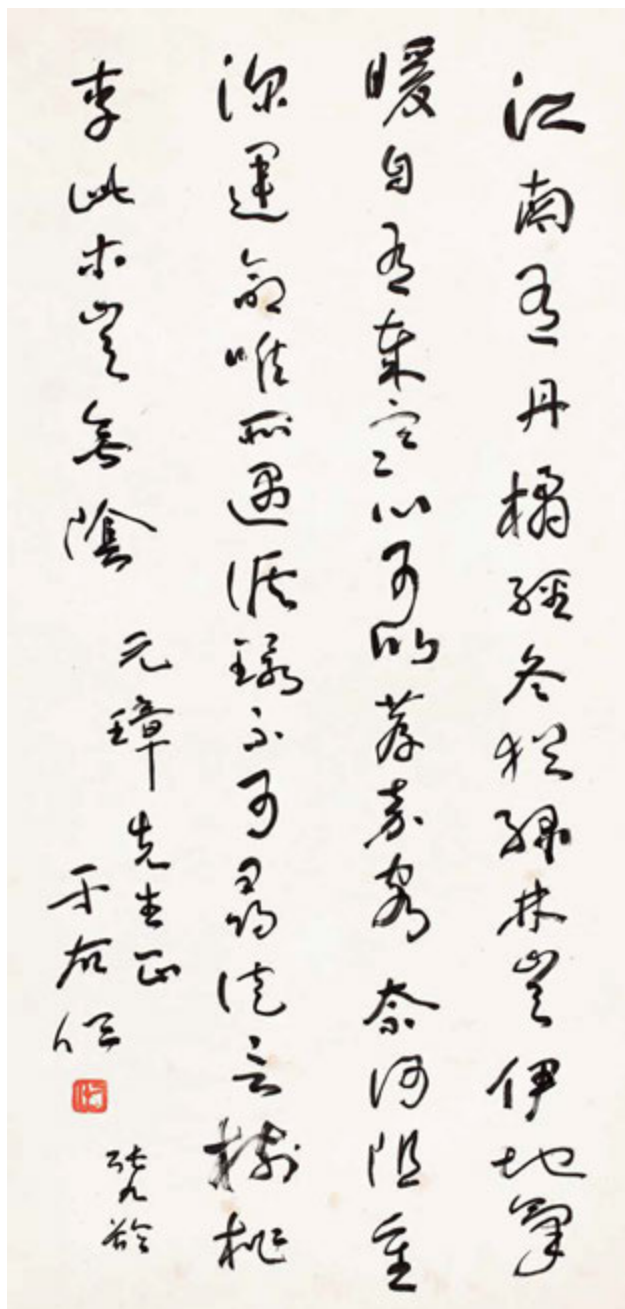 江南有丹橘經冬猶綠林豈伊地氣
暖自有歲寒心可以薦嘉客奈何阻重
深運命唯所遇循環不可尋徒言樹桃
李此木豈無陰
元璋先生正
于右任
張九齡